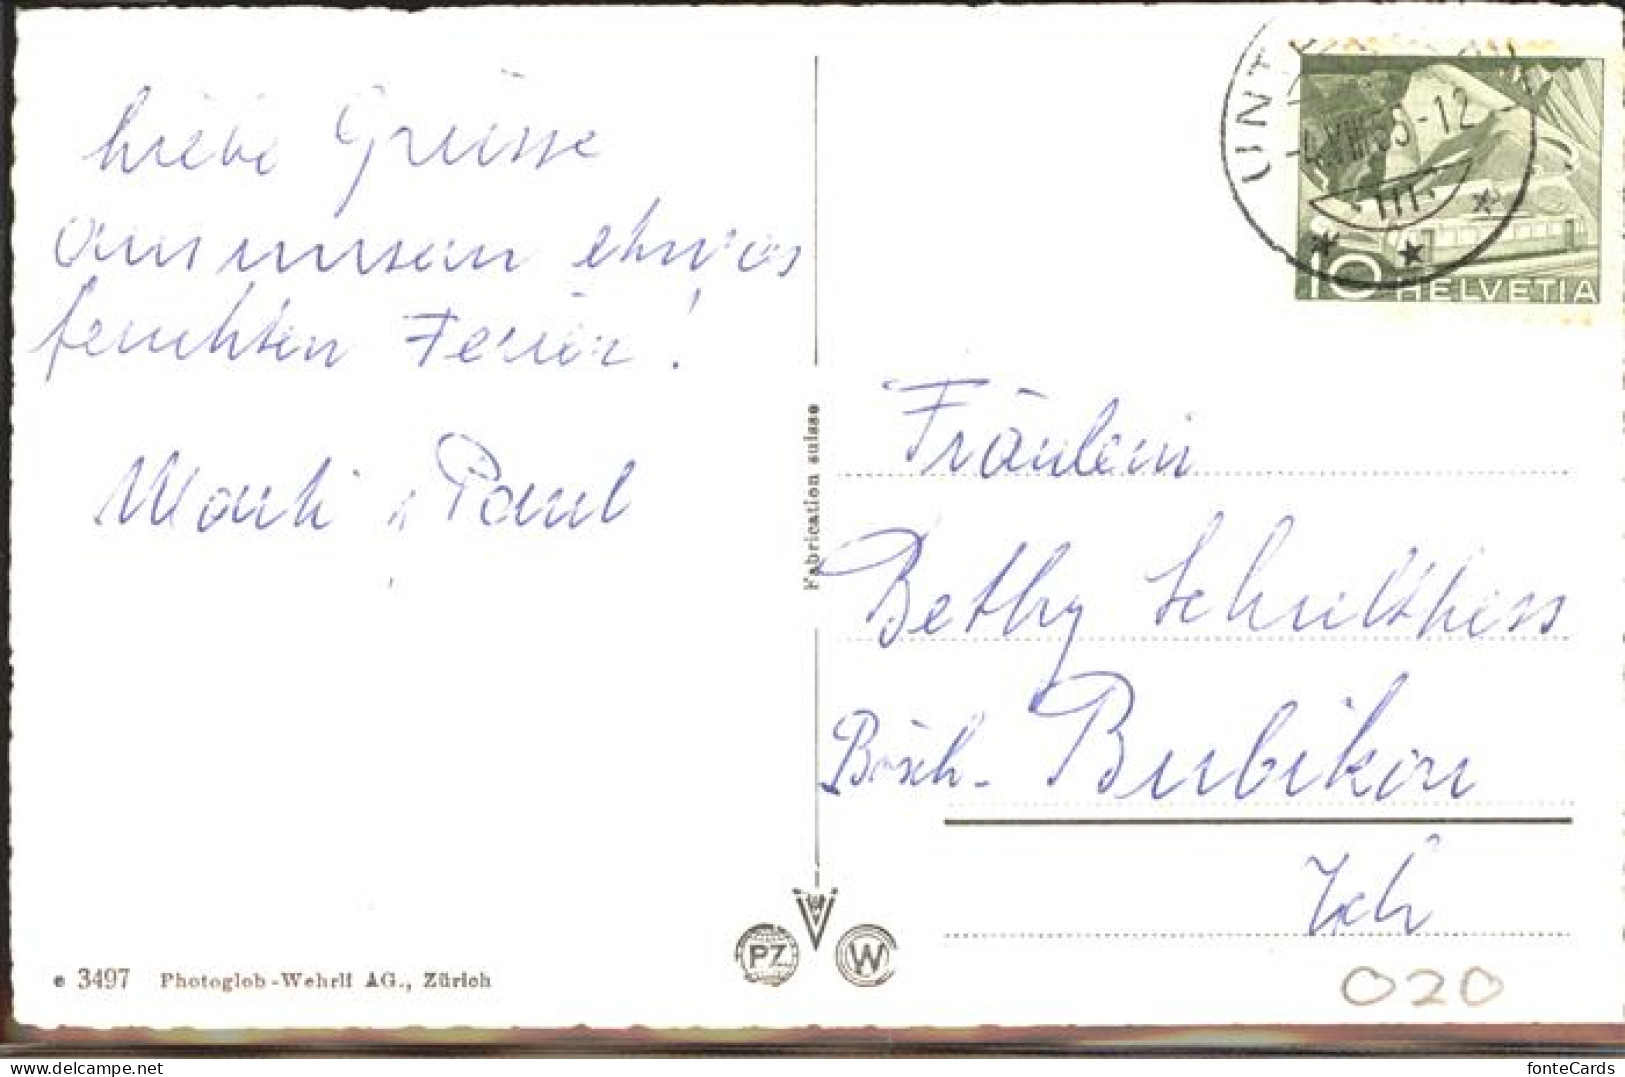 Liebe Grüsse
aus unsern etwas
feuchten Ferien!
Paul
Fabrication suisse
-4.VIII.53-12
10 HELVETIA
Fräulein
Bethy Schulthess
Bösch- Bubikon
Zch
PZ W
e 3497 Photoglob-Wehrli AG., Zürich
020
delcampe.net
fonteCards